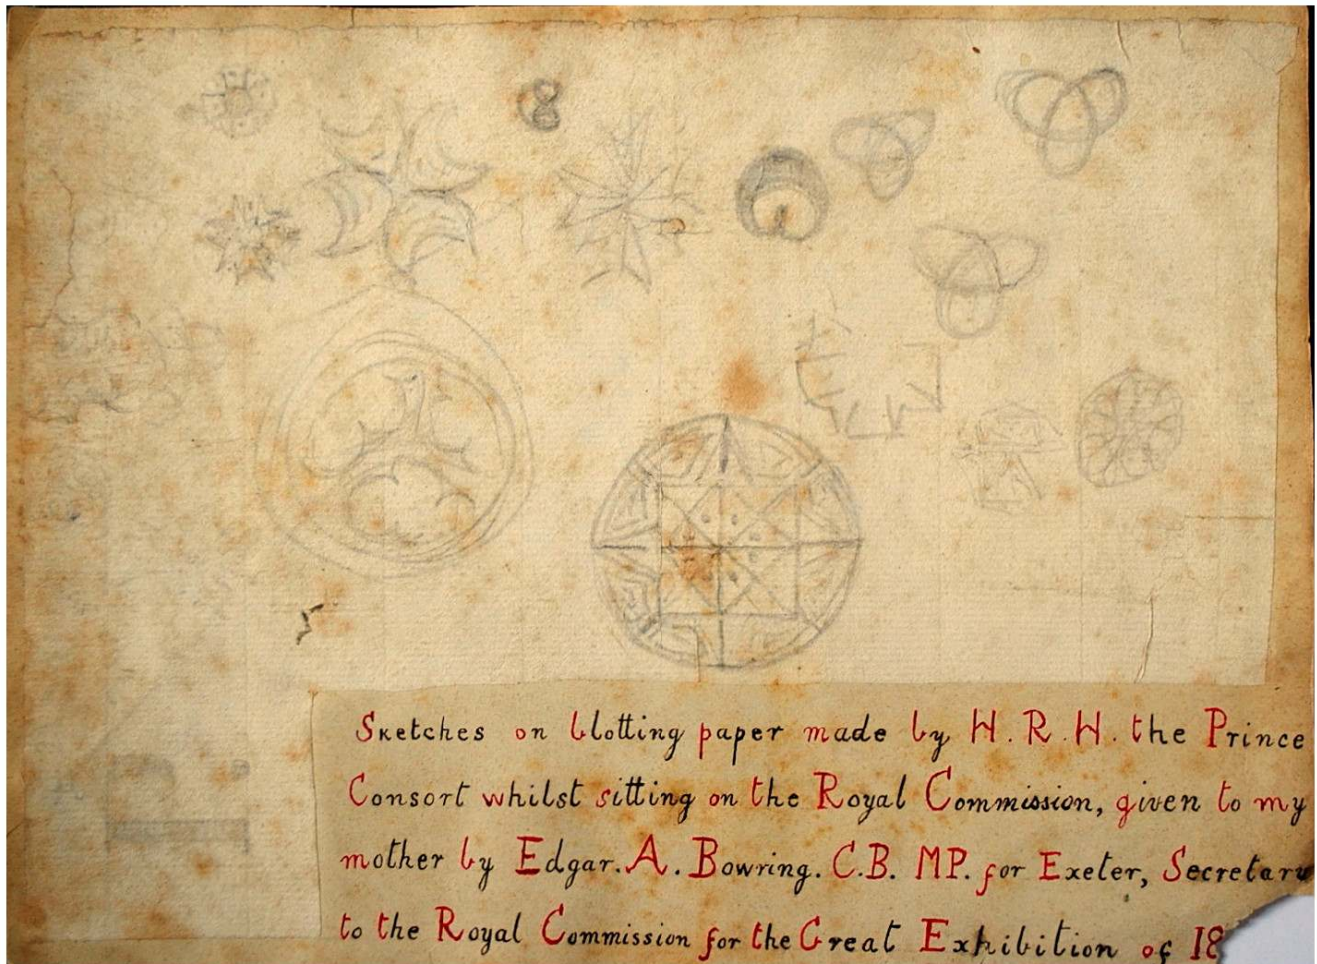 8
Sketches on blotting paper made by H.R.H. the Prince
Consort whilst sitting on the Royal Commission, given to my
mother by Edgar. A. Bowring. C.B. MP. for Exeter, Secretary
to the Royal Commission for the Great Exhibition of 18